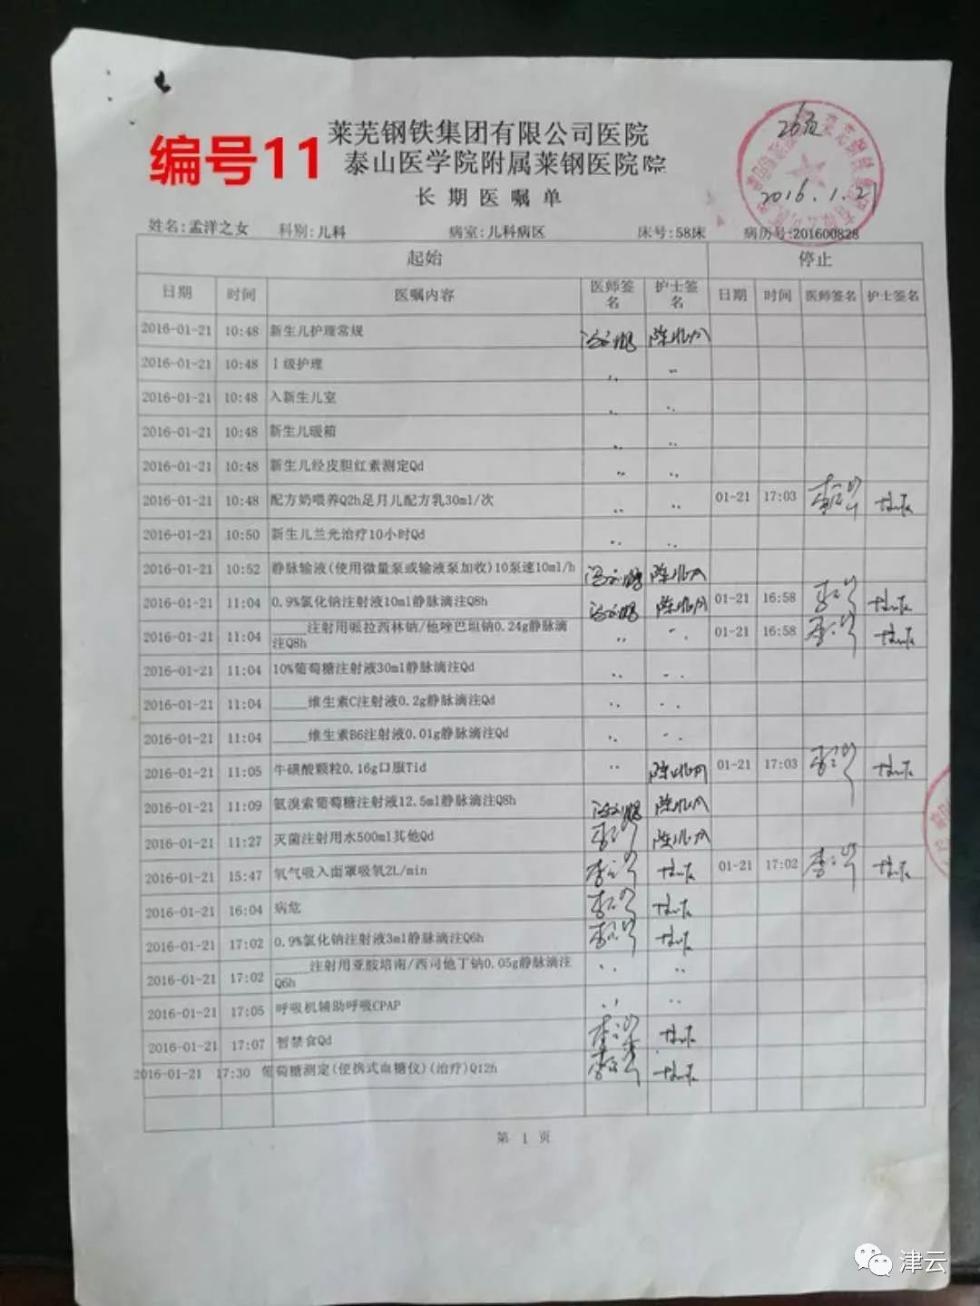 编号11
莱芜钢铁集团有限公司医院
泰山医学院附属莱钢医院院
长期医嘱单
2016.1.21
姓名:孟洋之女 科别:儿科 病室:儿科病区 床号:58床 病历号:201600828
起始 停止
日期 时间 医嘱内容 医师签名 护士签名 日期 时间 医师签名 护士签名
2016-01-21 10:48 新生儿护理常规
2016-01-21 10:48 I级护理
2016-01-21 10:48 入新生儿室
2016-01-21 10:48 新生儿暖箱
2016-01-21 10:48 新生儿经皮胆红素测定Qd
2016-01-21 10:48 配方奶喂养Q2h足月儿配方乳30ml/次 01-21 17:03
2016-01-21 10:50 新生儿兰光治疗10小时Qd
2016-01-21 10:52 静脉输液(使用微量泵或输液泵加收)10泵速10ml/h
2016-01-21 11:04 0.9%氯化钠注射液10ml静脉滴注Q8h 01-21 16:58
2016-01-21 11:04 ____注射用哌拉西林钠/他唑巴坦钠0.24g静脉滴
注Q8h 01-21 16:58
2016-01-21 11:04 10%葡萄糖注射液30ml静脉滴注Qd
2016-01-21 11:04 ____维生素C注射液0.2g静脉滴注Qd
2016-01-21 11:04 ____维生素B6注射液0.01g静脉滴注Qd
2016-01-21 11:05 牛磺酸颗粒0.16g口服Tid 01-21 17:03
2016-01-21 11:09 氨溴索葡萄糖注射液12.5ml静脉滴注Q8h
2016-01-21 11:27 灭菌注射用水500ml其他Qd
2016-01-21 15:47 氧气吸入面罩吸氧2L/min 01-21 17:02
2016-01-21 16:04 病危
2016-01-21 17:02 0.9%氯化钠注射液3ml静脉滴注Q6h
2016-01-21 17:02 ____注射用亚胺培南/西司他丁钠0.05g静脉滴注
Q6h
2016-01-21 17:05 呼吸机辅助呼吸CPAP
2016-01-21 17:07 暂禁食Qd
2016-01-21 17:30 葡萄糖测定(便携式血糖仪)(治疗)Q12h
第 1 页
津云